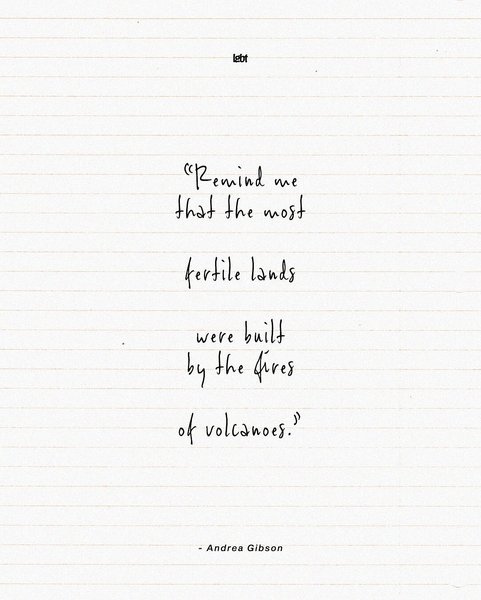 “Remind me
that the most
fertile lands
were built
by the fires
of volcanoes.”
- Andrea Gibson